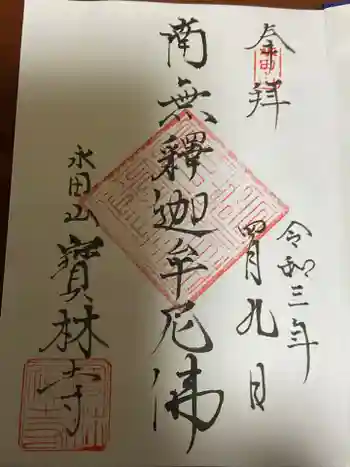 奉拝
令和三年
四月九日
南無釋迦牟尼佛
永田山
寶林寺